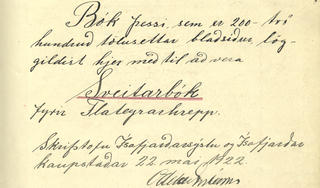 Bók þessi, sem er 200 - tvö
hundruð tölusettar blaðsíður, lög-
gildist hjer með til að vera
Sveitarbók
fyrir Flateyrarhrepp.
Skrifstofu Ísafjarðarsýslu og Ísafjarðar
kaupstaðar 22 maí 1922